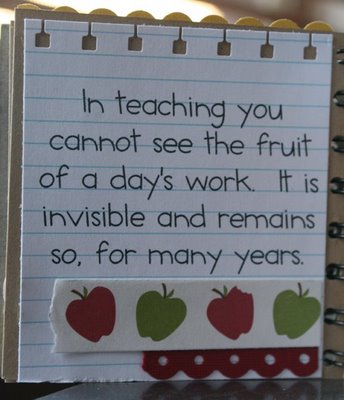 In teaching you
cannot see the fruit
of a day's work. It is
invisible and remains
so, for many years.